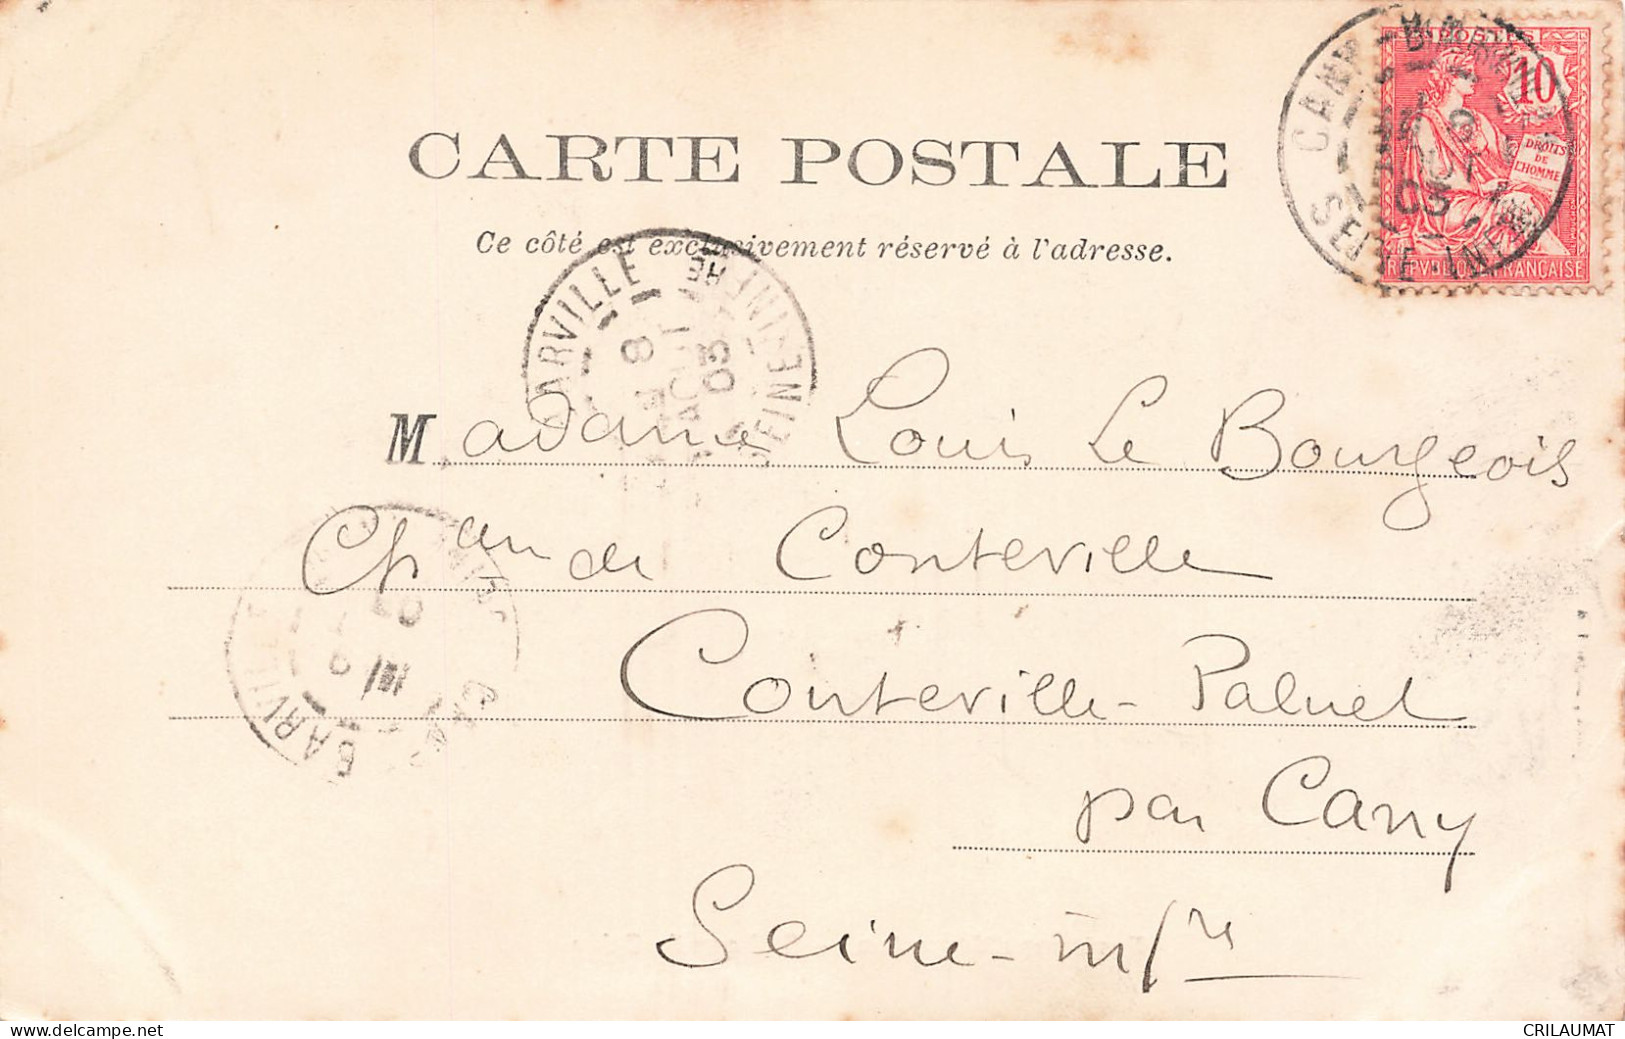 CARTE POSTALE
Ce côté est exclusivement réservé à l'adresse.
POSTES
10
DROITS
DE
L'HOMME
REPVBLIQVE FRANÇAISE
CANY
SEINE-INFRE
03
ARVILLE
SEINE INFRE
8
AOUT
03
Madame Louis Le Bourgeois
Chau de Conteville
Conteville-Paluel
par Cany
Seine-infre
CRILAUMAT